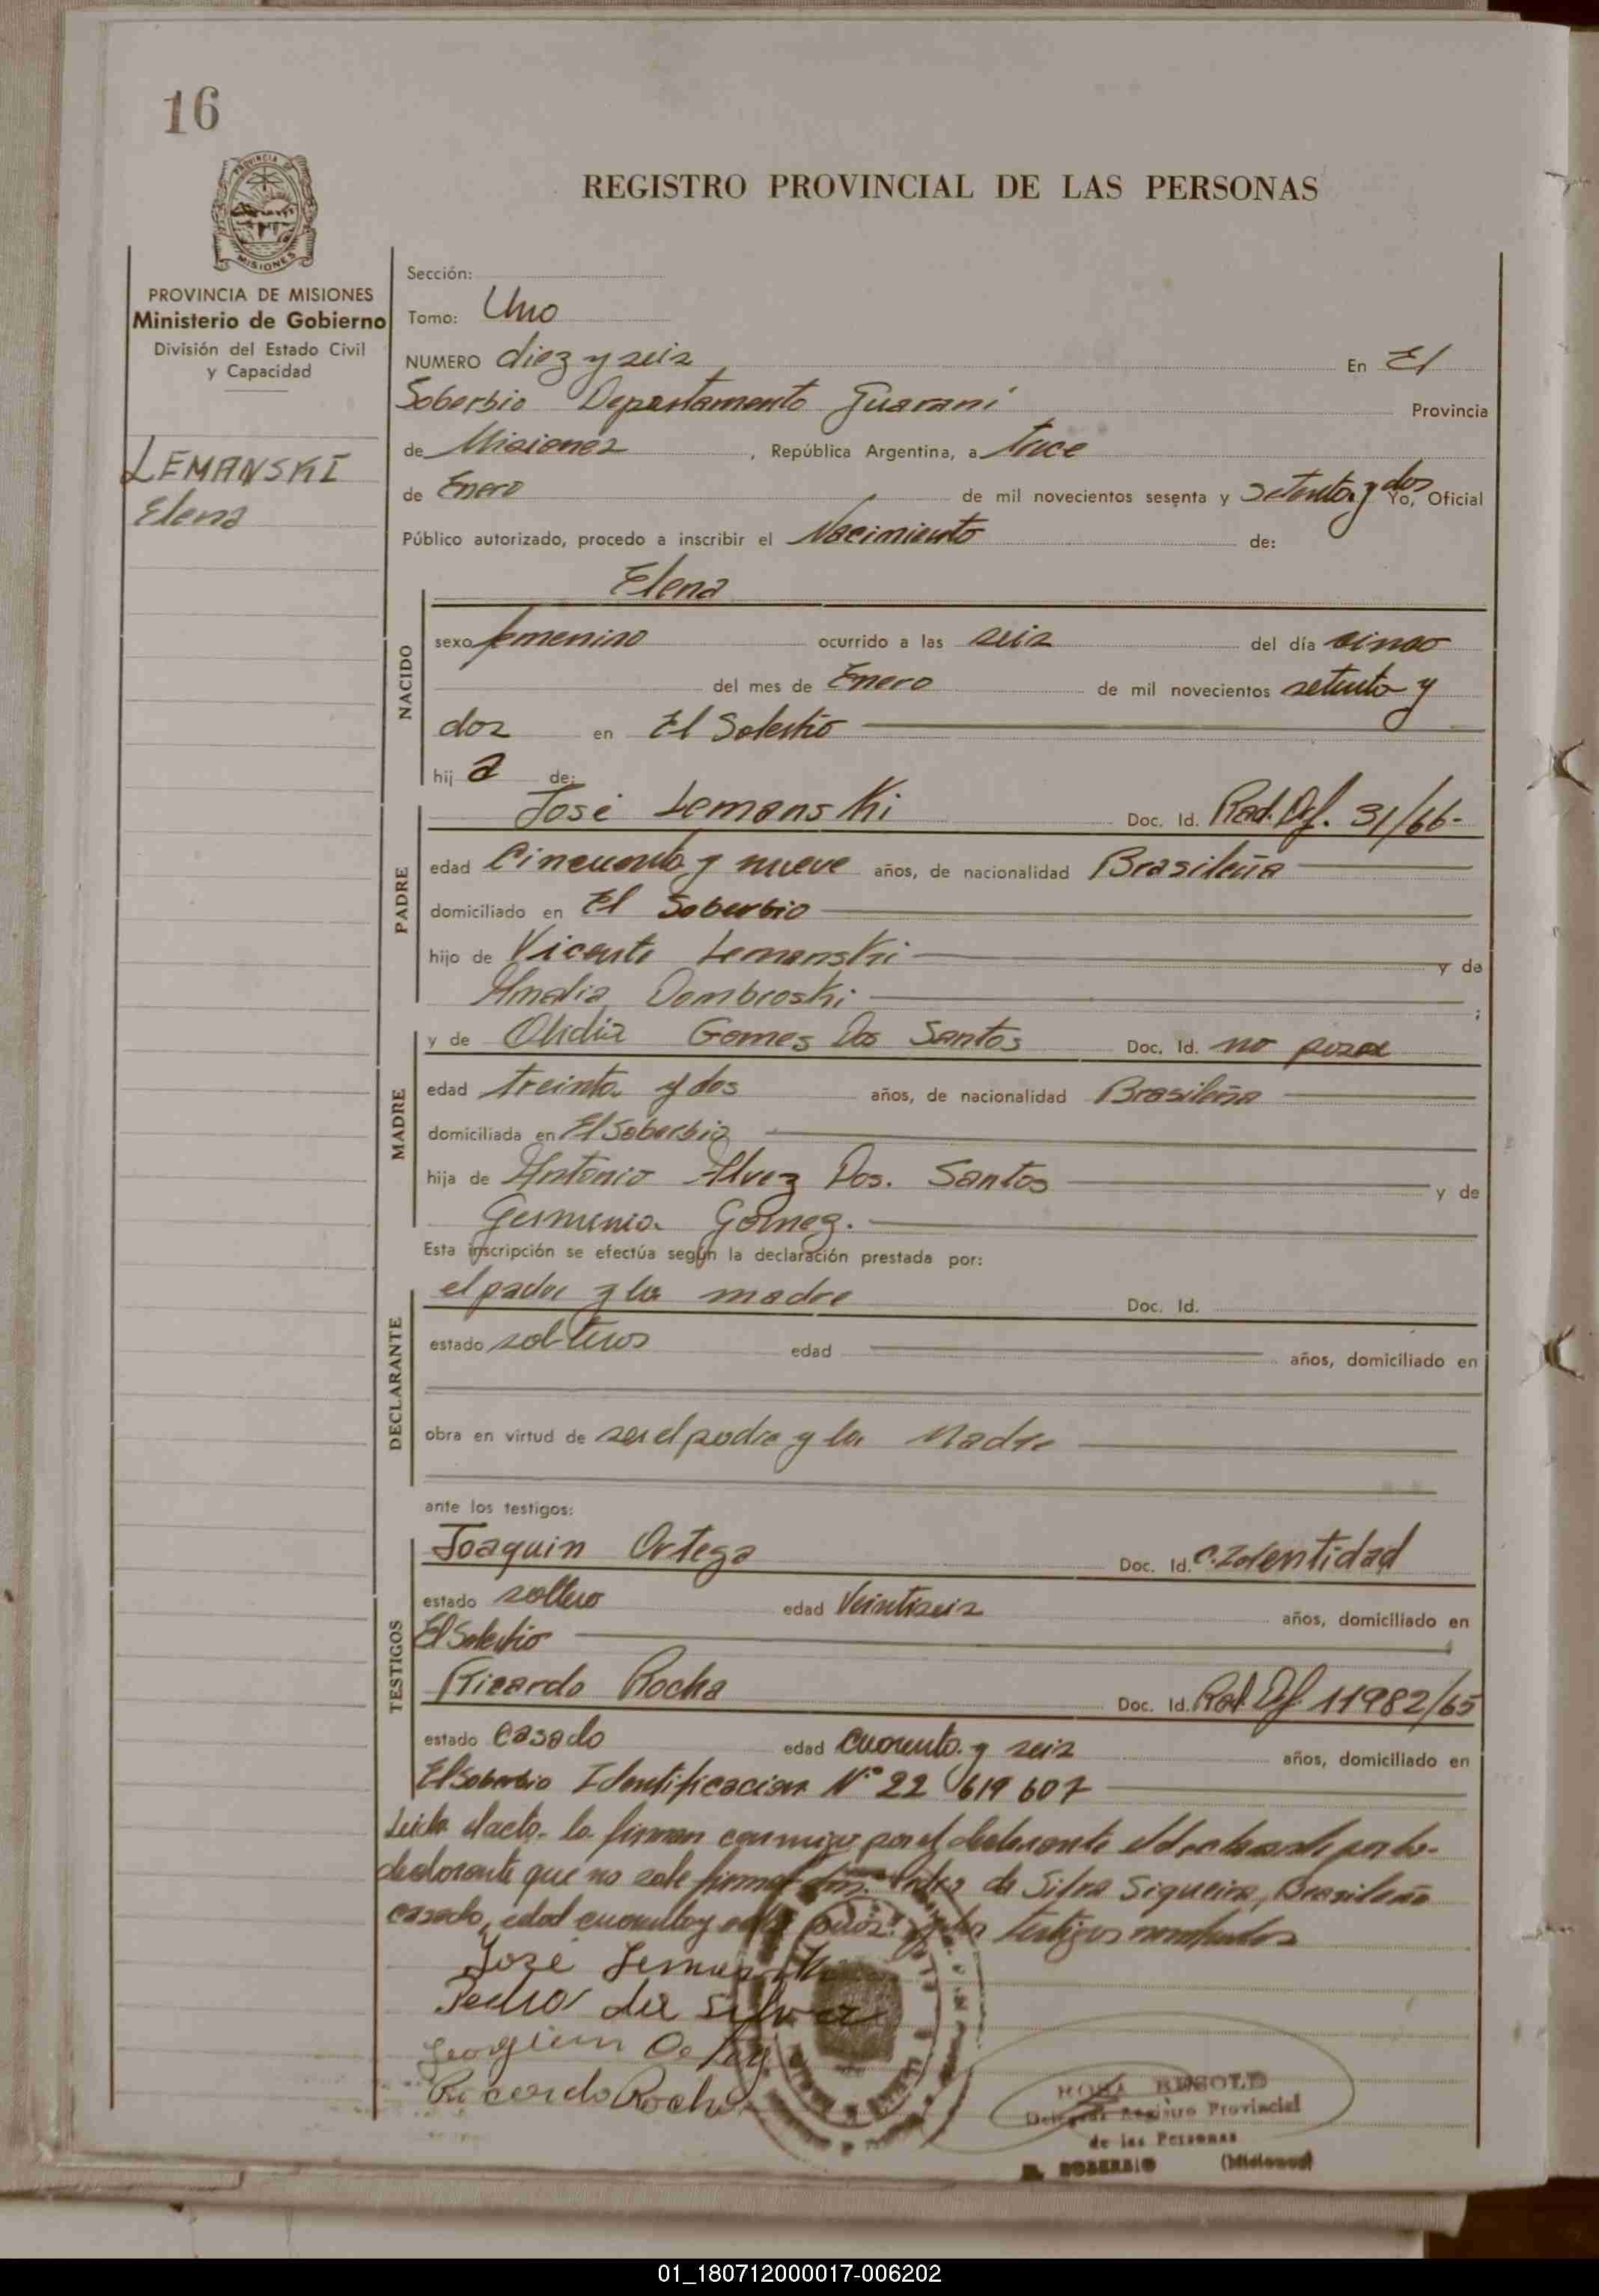 16
PROVINCIA DE
MISIONES
REGISTRO PROVINCIAL DE LAS PERSONAS
PROVINCIA DE MISIONES
Ministerio de Gobierno
División del Estado Civil
y Capacidad
LEMANSKI
Elena
Sección:
Tomo: Uno
NUMERO diez y seis En El
Soberbio Departamento Guaraní Provincia
de Misiones , República Argentina, a trece
de Enero de mil novecientos sesenta y setenta y dos Yo, Oficial
Público autorizado, procedo a inscribir el Nacimiento de:
NACIDO
Elena
sexo femenino ocurrido a las seis del día cinco
del mes de Enero de mil novecientos setenta y
dos en El Soberbio
hij a de:
PADRE
José Lemanski Doc. Id. Rad. Df. 31/66-
edad Cincuenta y nueve años, de nacionalidad Brasileña
domiciliado en El Soberbio
hijo de Vicente Lemanski y de
Amalia Dombroski ;
MADRE
y de Olidia Gomes Dos Santos Doc. Id. no posee
edad treinta y dos años, de nacionalidad Brasileña
domiciliada en El Soberbio
hija de Antonio Alvez Dos. Santos y de
Gomez.
Esta inscripción se efectúa según la declaración prestada por:
DECLARANTE
el padre y la madre Doc. Id.
estado solteros edad años, domiciliado en
obra en virtud de ser el padre y la Madre
ante los testigos:
TESTIGOS
Joaquin Ortega Doc. Id. C. Identidad
estado soltero edad Veintiseis años, domiciliado en
El Soberbio
Ricardo Rocha Doc. Id. Rad. Df. 11982/65
estado casado edad cuarenta y seis años, domiciliado en
El Soberbio Identificacion N° 22 619 607
Leida el acta la firman conmigo por el declarante el declarante por la
declarante que no sabe firmar Pedro da Silva Siqueira, Brasileño
casado, edad cuarenta y testigos nombrados
José Lemanski
Pedro da Silva
Ortega
Ricardo Rocha
ROSA BESOLD
Delegada Registro Provincial
de las Personas
EL SOBERBIO (Misiones)
01_180712000017-006202